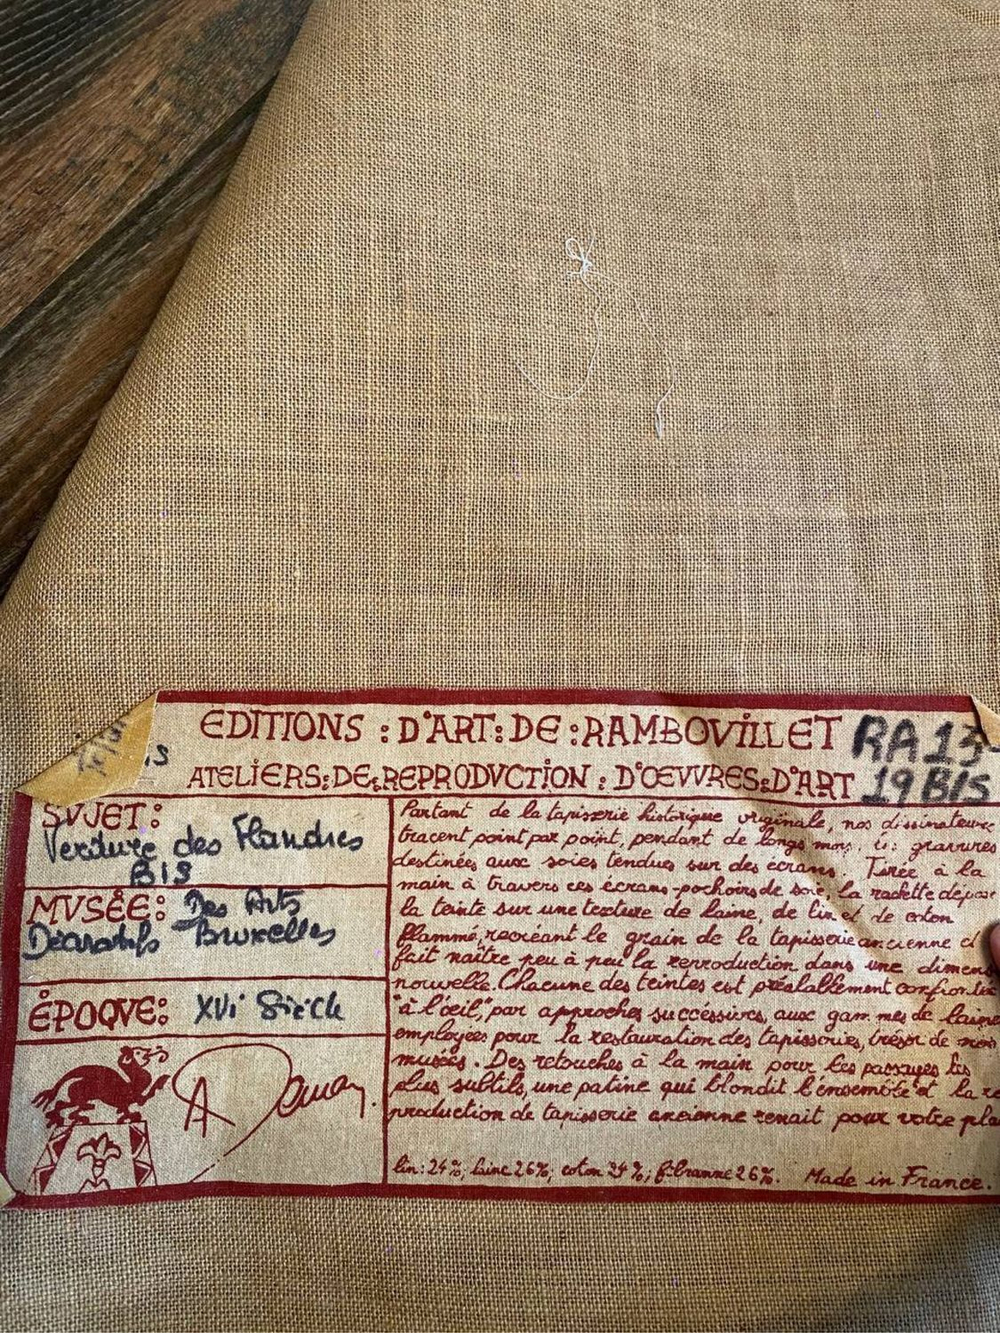 EDITIONS : D'ART : DE : RAMBOVILLET
RA 13
ATELIERS : DE : REPRODVCTION : D'ŒVVRES : D'ART
19 BIS
SVJET :
Verdure des Flandres
BIS
MVSÉE : Des Arts
Décoratifs Bruxelles
ÉPOQVE : XVI Siècle
Partant de la tapisserie historique originale, nos dessinateurs
tracent point par point, pendant de longs mois, gravures
destinées aux soies tendues sur des écrans. Tirée à la
main à travers ces écrans-pochoirs de soie, la raclette dépose
la teinte sur une texture de laine, de lin et de coton
flammé, recréant le grain de la tapisserie ancienne et
fait naître peu à peu la reproduction dans une dimens
nouvelle. Chacune des teintes est préalablement confrontée
"à l'œil", par approches successives, aux gammes de laine
employées pour la restauration des tapisseries, trésor de nos
musées. Des retouches à la main pour les passages les
plus subtils, une patine qui blondit l'ensemble et la re
production de tapisserie ancienne renait pour votre plai
lin : 24 %, laine 26 %, coton 24 %, fibranne 26 %. Made in France.